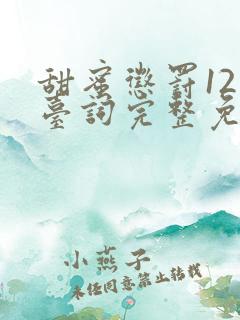 甜蜜懲罰12
臺詞完整免
小燕子
未经同意禁止转载